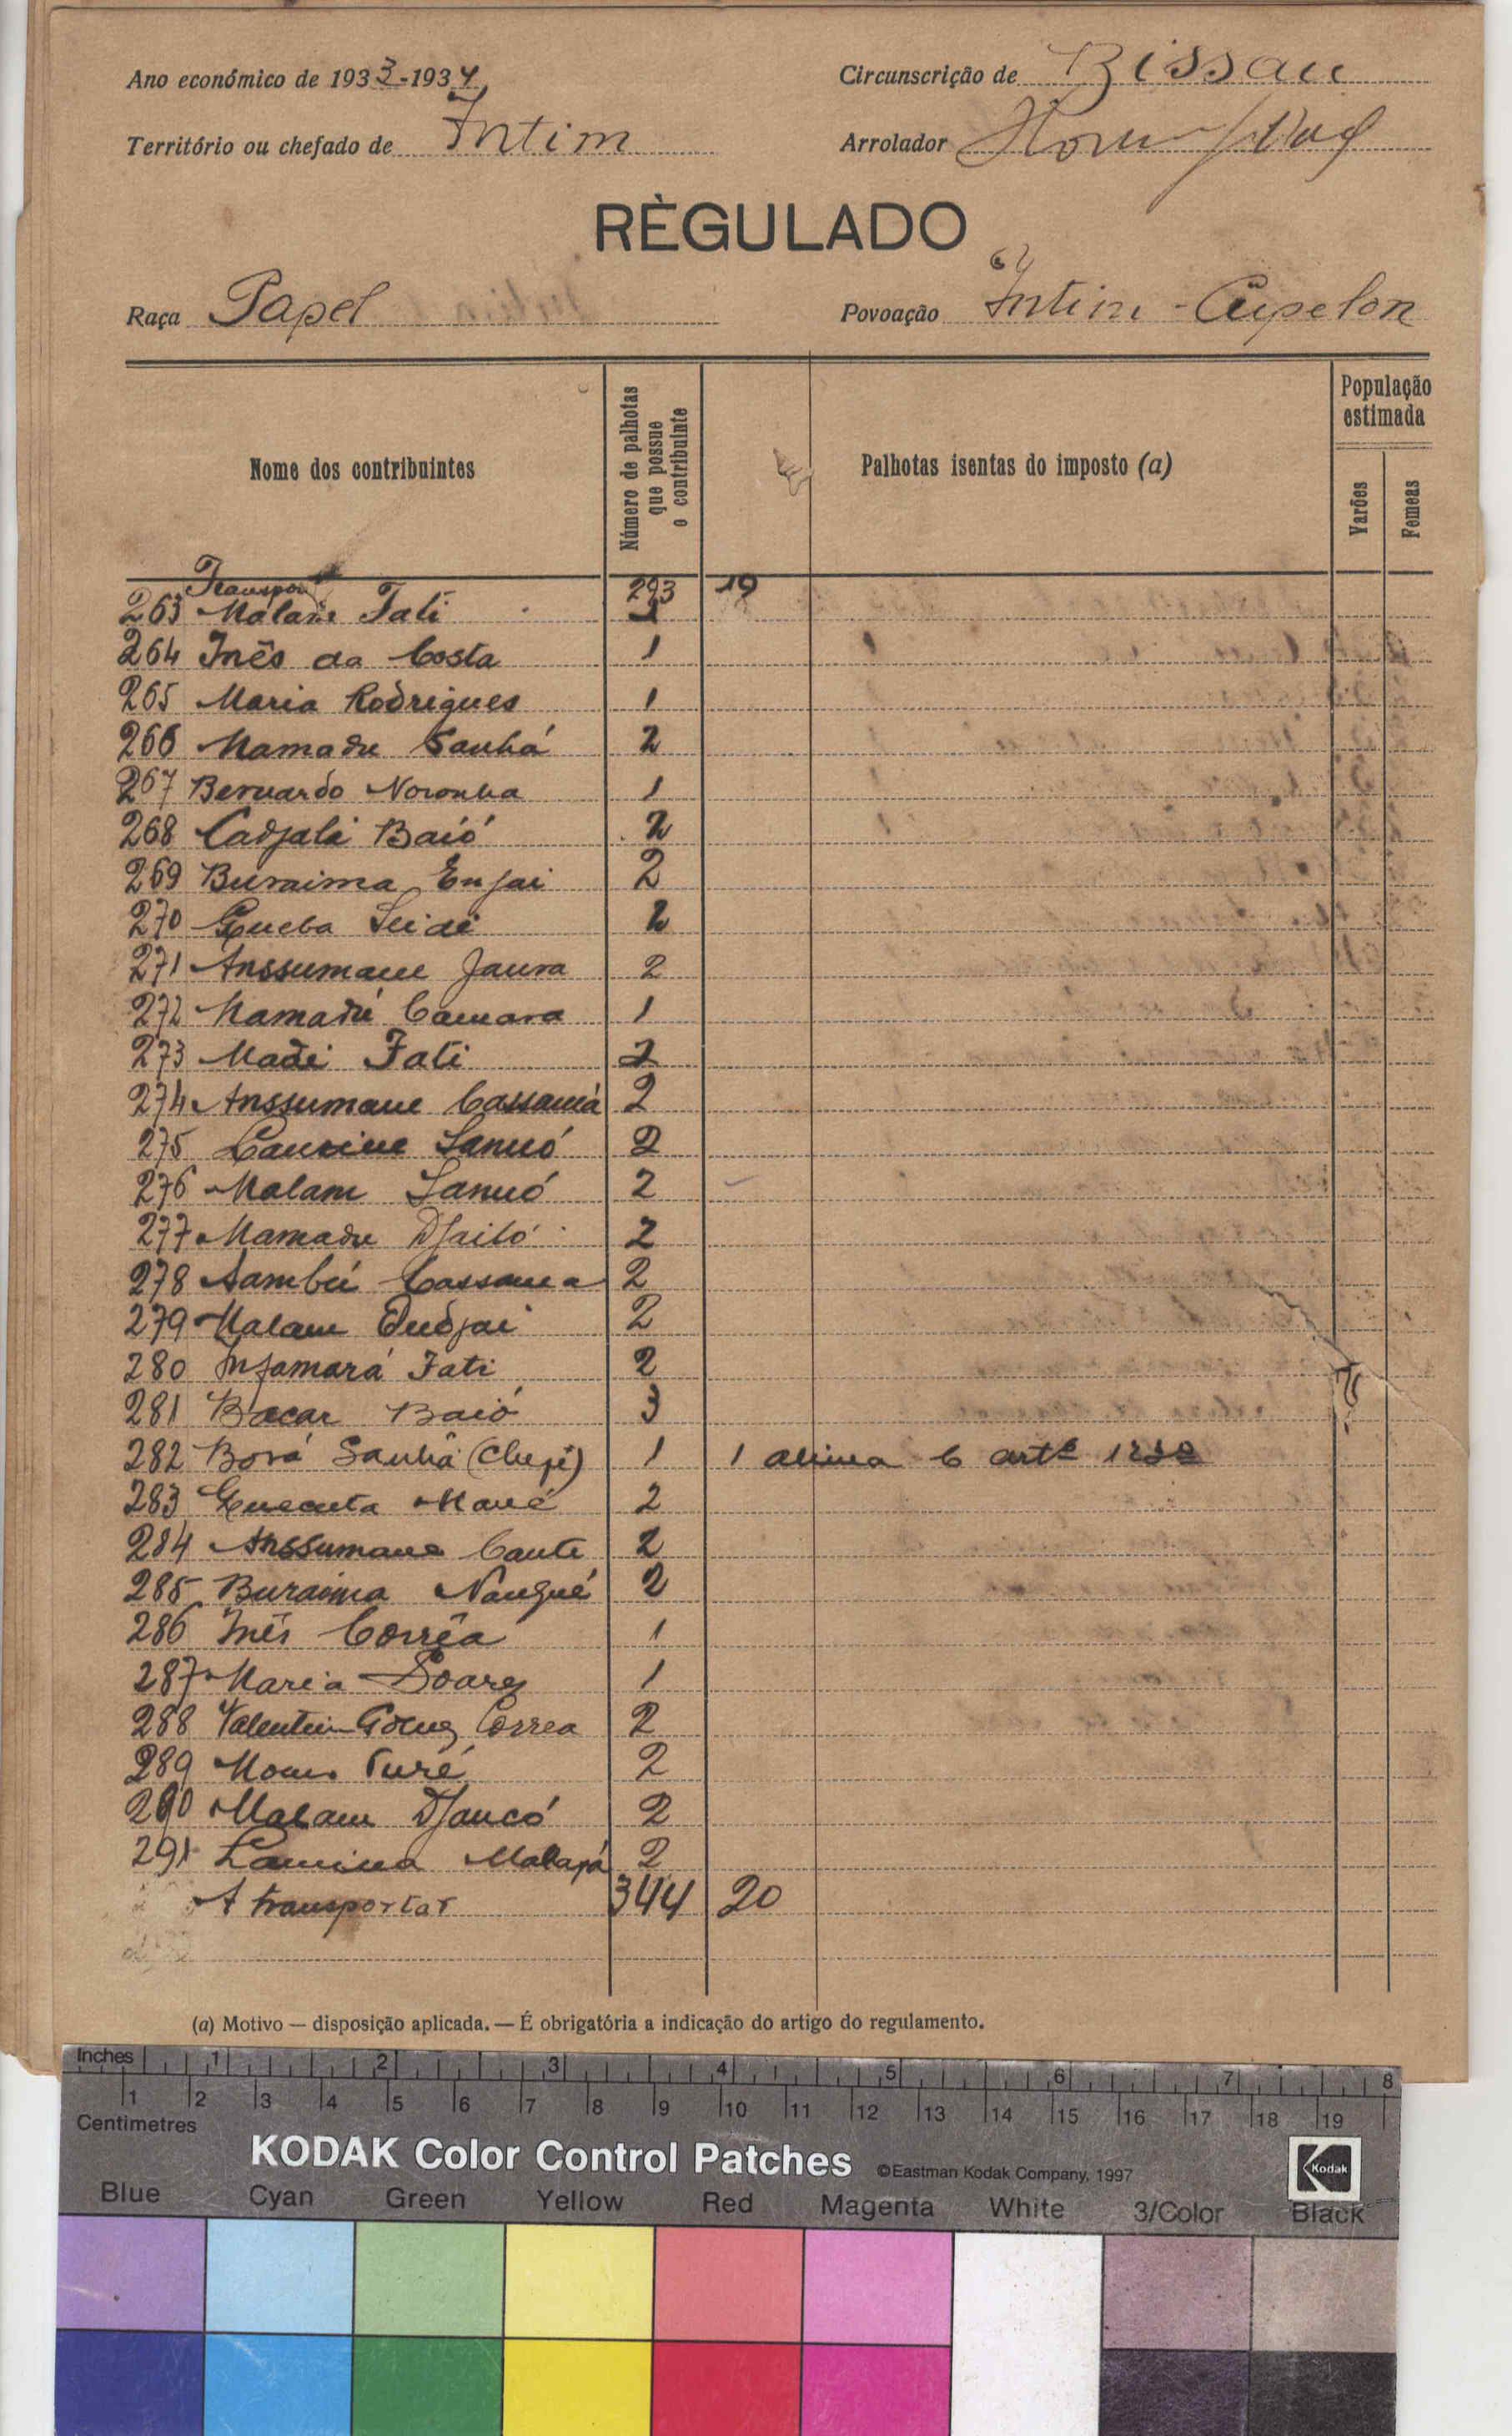 Ano económico de 1933-1934
Circunscrição de Bissau
Território ou chefado de Intim
Arrolador
RÈGULADO
64
Raça Papel
Povoação Intim - Cupelon
Nome dos contribuintes
Número de palhotas que possue o contribuinte
Palhotas isentas do imposto (a)
População estimada
Varões
Femeas
Transporte 293 19
263 Malam Fati 1
264 Inês da Costa 1
265 Maria Rodrigues 1
266 Mamadu Sanhá 2
267 Bernardo Noronha 1
268 Cadjali Baió 2
269 Buraima Enjai 2
270 Queba Seidi 2
271 Anssumane Jaura 2
272 Mamadú Camara 1
273 Madi Fati 2
274 Anssumane Cassamá 2
275 Sanuó 2
276 Malam Sanuó 2
277 Mamadu Djaló 2
278 Sambú Cassama 2
279 Malam Dudjai 2
280 Infamará Fati 2
281 Bacar Baió 3
282 Borá Sanhá 1 1 alinea b artº
283 Quecuta Mané 2
284 Anssumane Cante 2
285 Buraima Nanqué 2
286 Inês Corrêa 1
287 Maria Soares 1
288 Valentim Gomes Correa 2
289 Turé 2
290 Malam Djancó 2
291 Lamina 2
A transportar 344 20
(a) Motivo — disposição aplicada. — É obrigatória a indicação do artigo do regulamento.
Inches 1 2 3 4 5 6 7 8
1 2 3 4 5 6 7 8 9 10 11 12 13 14 15 16 17 18 19
Centimetres
KODAK Color Control Patches ©Eastman Kodak Company, 1997 Kodak
Blue Cyan Green Yellow Red Magenta White 3/Color Black